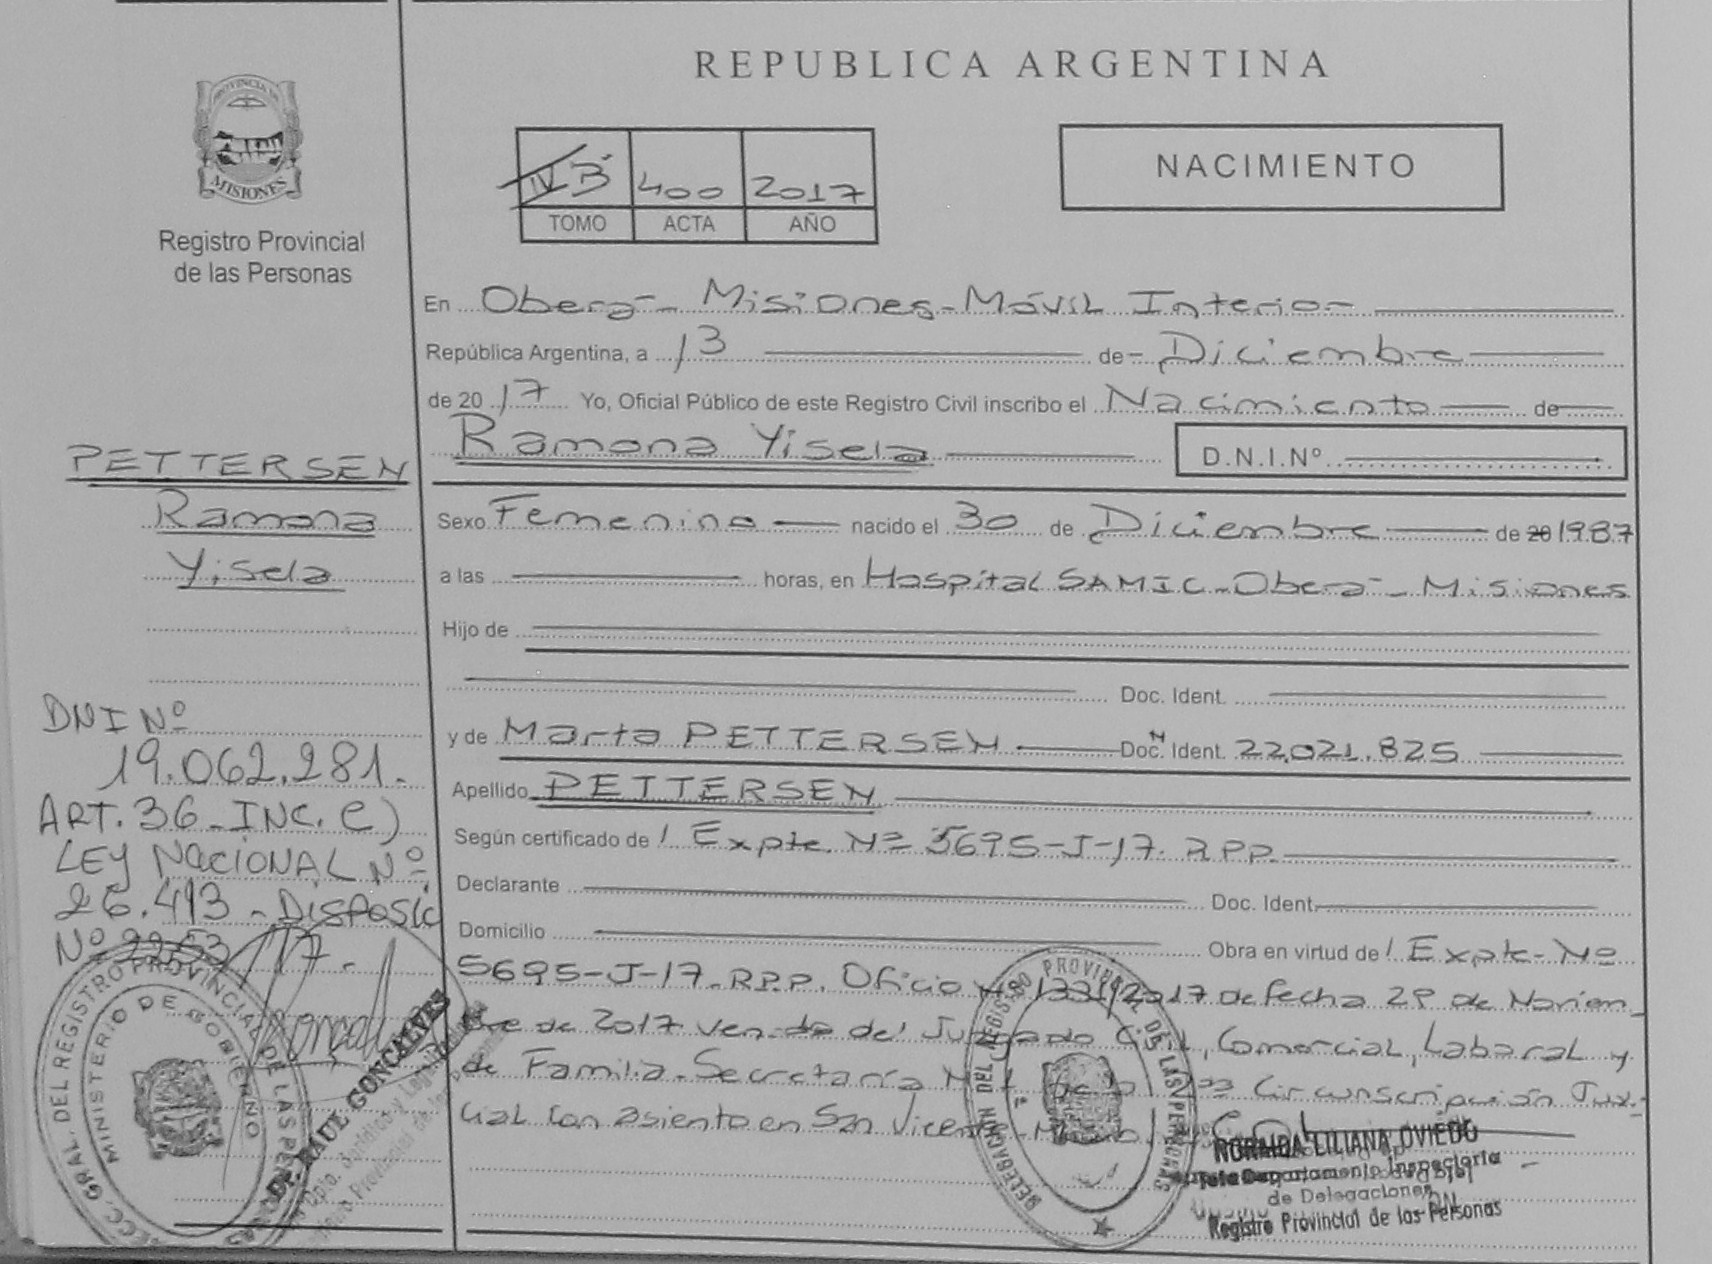 REPUBLICA ARGENTINA
PROVINCIA DE
MISIONES
Registro Provincial
de las Personas
IV B 400 2017
TOMO ACTA AÑO
NACIMIENTO
En Oberá - Misiones - Móvil Interior
República Argentina, a 13 de Diciembre
de 20 17 Yo, Oficial Público de este Registro Civil inscribo el Nacimiento de
Ramona Yisela
D.N.I.Nº
Sexo Femenino nacido el 30 de Diciembre de 20 1987
a las horas, en Hospital SAMIC - Oberá - Misiones
Hijo de
Doc. Ident.
y de Marta PETTERSEN Doc. Ident. 22.021.825
Apellido PETTERSEN
Según certificado de / Expte. Nº 5695-J-17. R.P.P.
Declarante Doc. Ident.
Domicilio Obra en virtud de / Expte. Nº
5695-J-17. R.P.P. Oficio Nº 2017 de fecha 29 de Noviem
bre de 2017 del Juzgado Civil, Comercial, Laboral y
de Familia - Secretaría Circunscripción
cial con asiento en San Vicente -
PETTERSEN
Ramona
Yisela
DNI Nº
19.062.281.
ART. 36 - INC. C)
LEY NACIONAL Nº
26.413 - DISPOSIC
Nº 2263/17.
GRAL. DEL REGISTRO PROVINCIAL DE LAS PERSONAS
MINISTERIO DE GOBIERNO
RAUL GONCALVES
Dpto. Jurídico y
DELEGACION DEL REGISTRO PROVINCIAL DE LAS PERSONAS
NORAIDA LILIANA OVIEDO
Departamento Inspectoria
de Delegaciones
Registro Provincial de las Personas